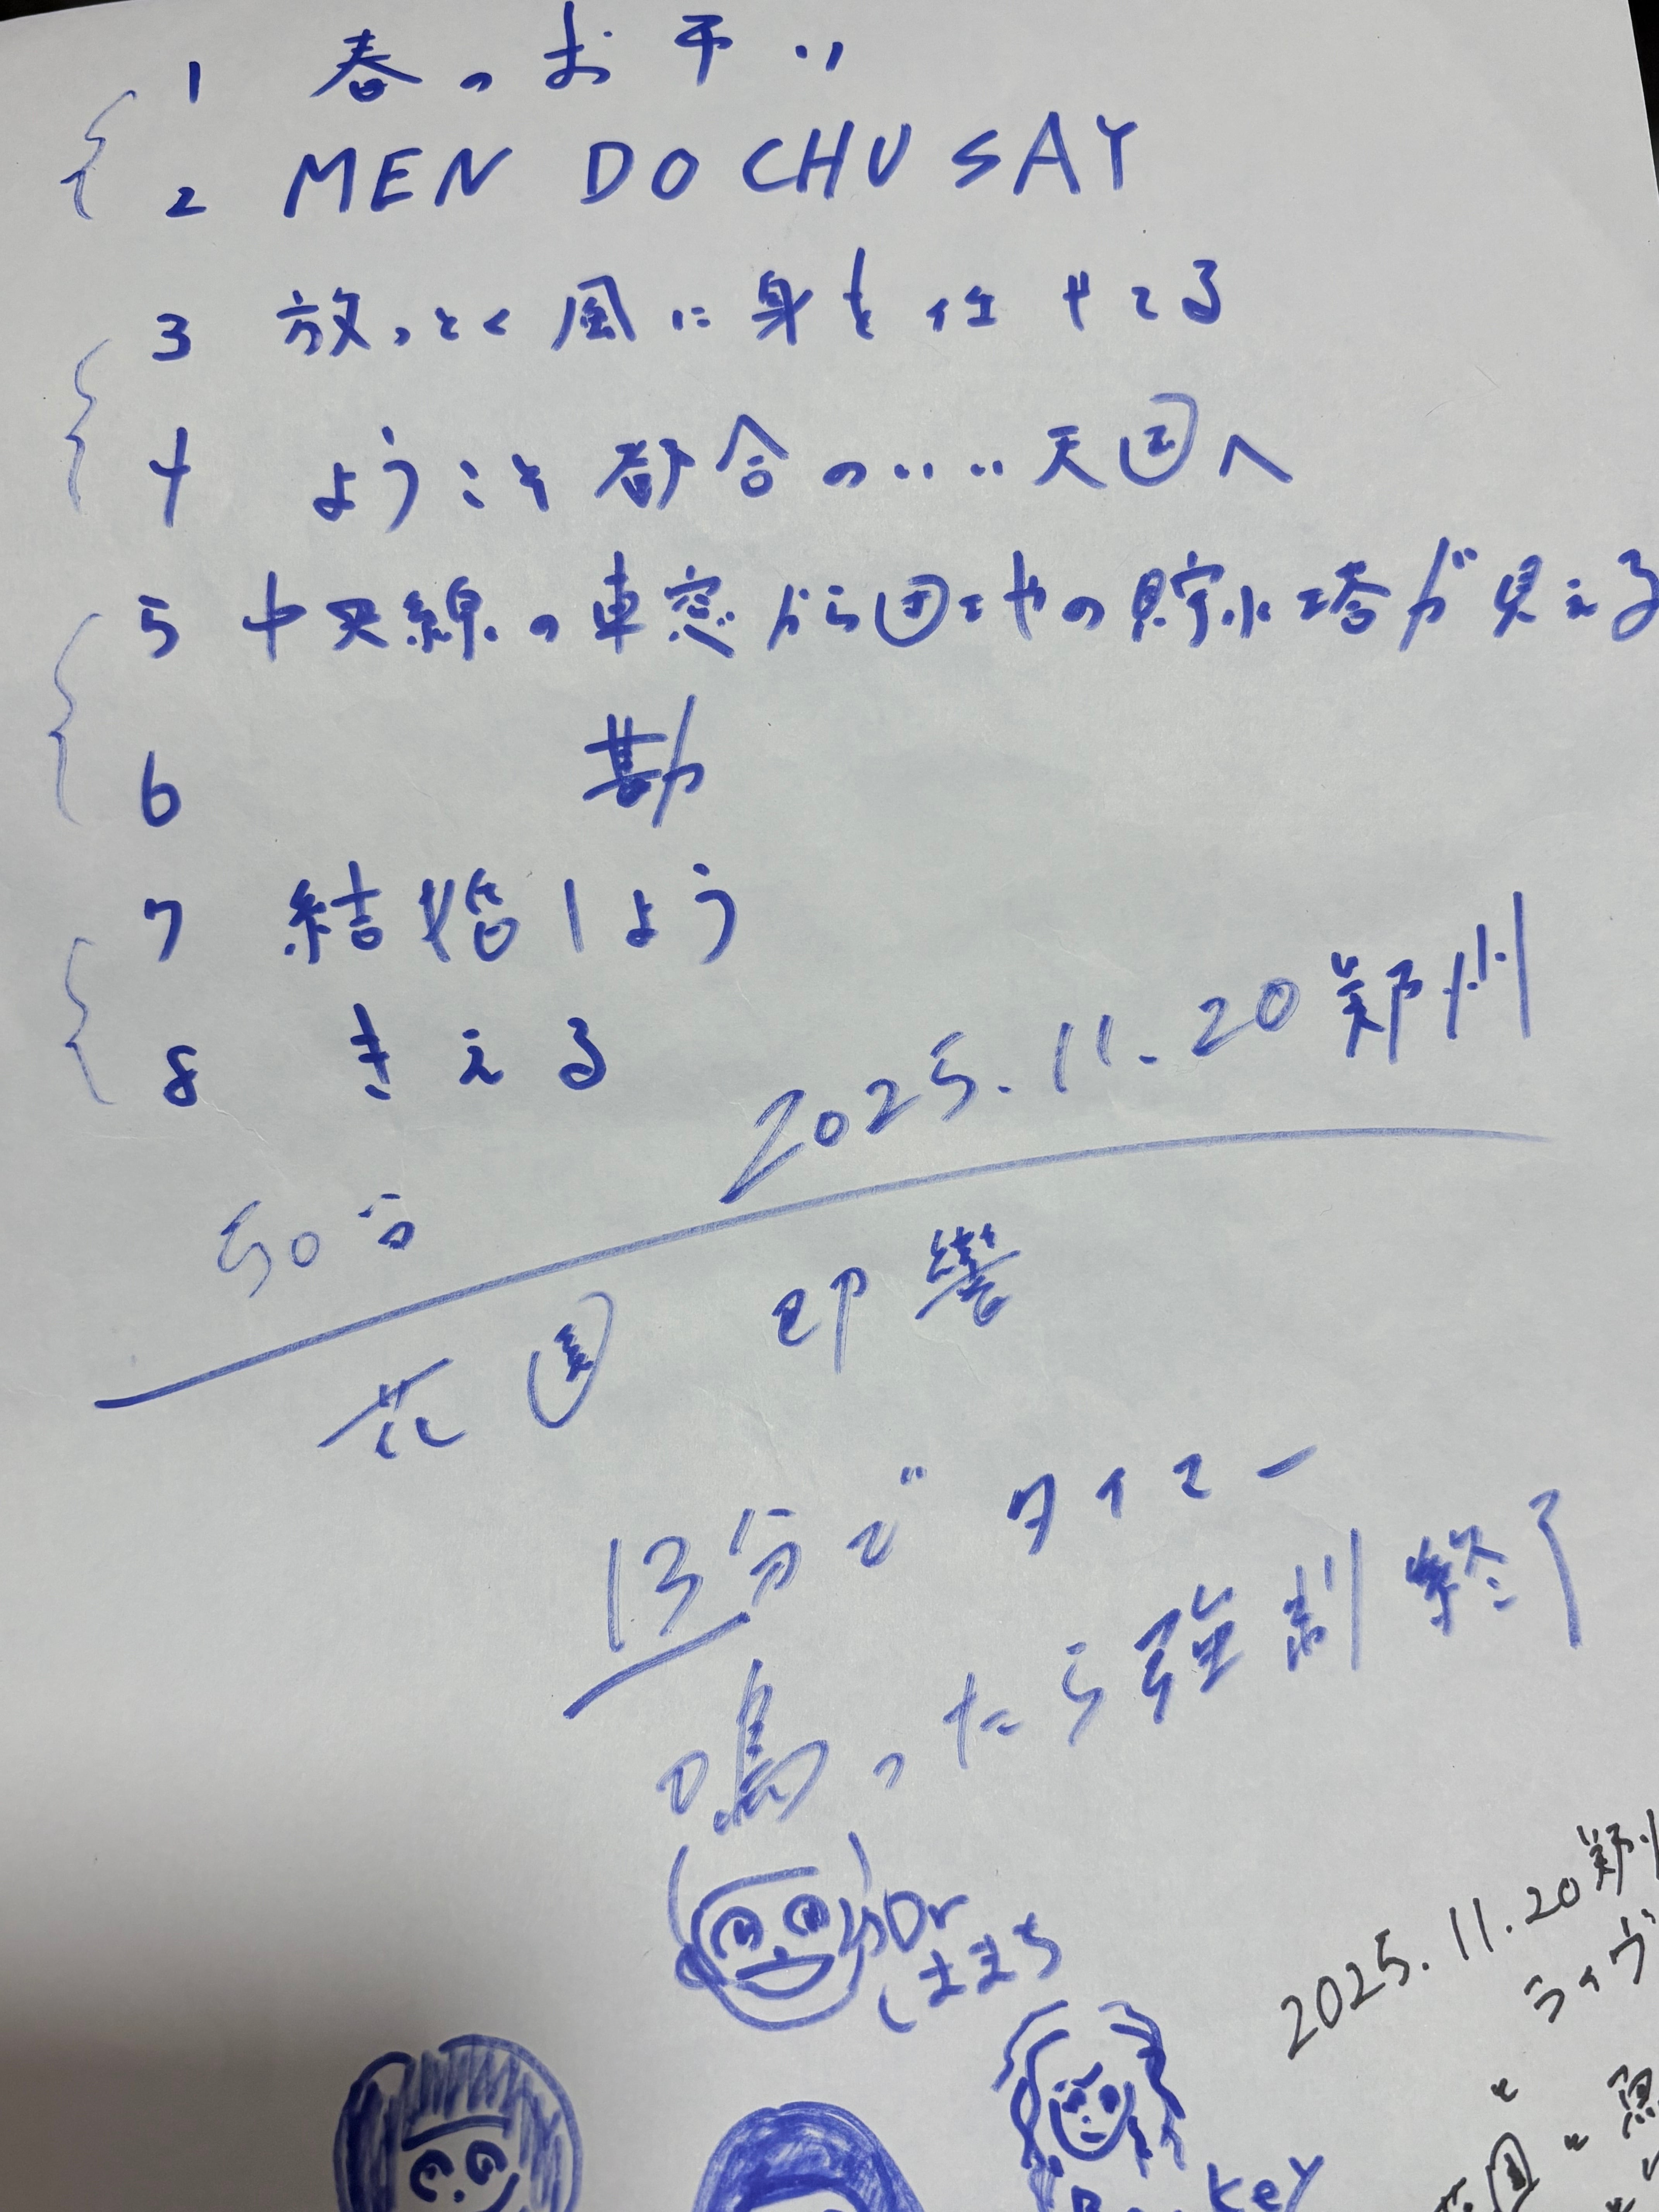 1 春のお手‥
2 MEN DO CHU SAY
3 放っとく風に身を任せてる
4 ようこそ都合の‥‥天国へ
5 中央線の車窓から団地の貯水塔が見える
6 勘
7 結婚しよう
8 きえる
2025.11.20 郑州
50分
花园 即響
13分で タイマー
鳴ったら強制終了
Dr
しままち
2025.11.20 郑州
ライヴ
key